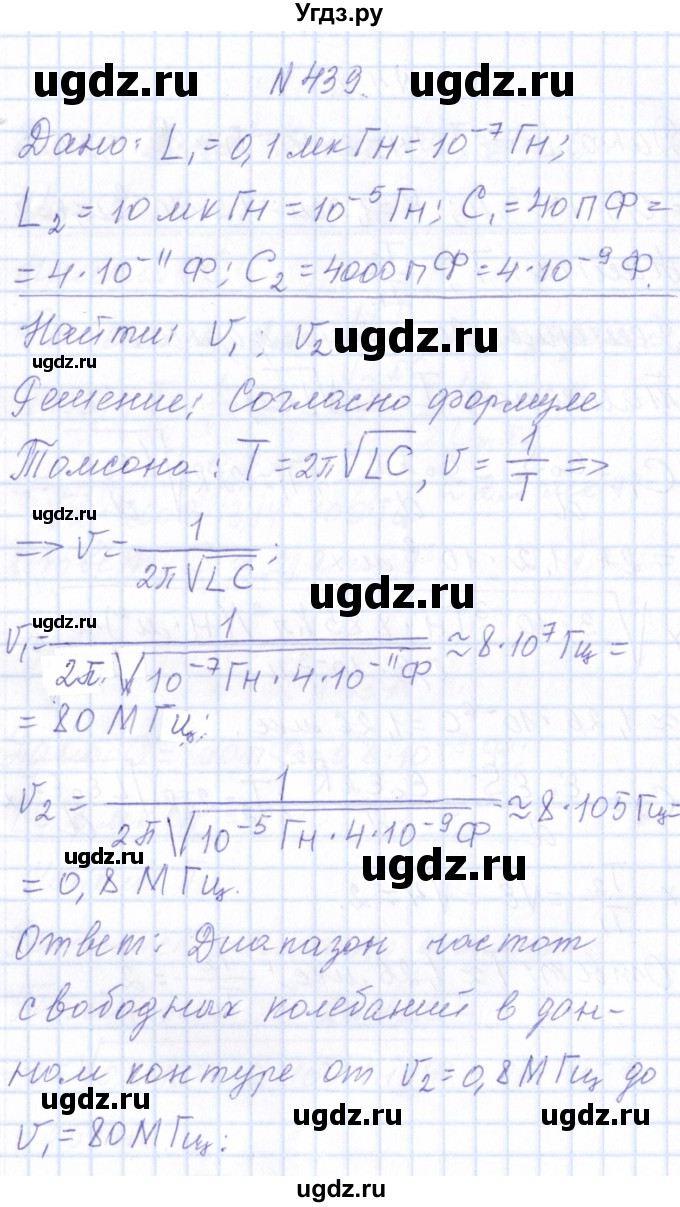 Угдз.ру
ugdz.ru ugdz.ru
N 439.
Дано: L₁ = 0,1 мкГн = 10⁻⁷ Гн;
L₂ = 10 мкГн = 10⁻⁵ Гн; C₁ = 40 пФ =
= 4·10⁻¹¹ Ф; C₂ = 4000 пФ = 4·10⁻⁹ Ф.
Найти: ν₁; ν₂
ugdz.ru
ugdz.ru
Решение: Согласно формуле
Томсона: T = 2π√LC, ν = 1/T =>
ugdz.ru
=> ν = 1/2π√LC;
ugdz.ru
ugdz.ru
ν₁ = 1/2π·√10⁻⁷ Гн·4·10⁻¹¹ Ф ≈ 8·10⁷ Гц =
= 80 МГц;
ν₂ = 1/2π√10⁻⁵ Гн·4·10⁻⁹ Ф ≈ 8·105 Гц =
ugdz.ru
ugdz.ru
= 0,8 МГц.
Ответ: Диапазон частот
свободных колебаний в дан-
ном контуре от ν₂ = 0,8 МГц до
ugdz.ru ugdz.ru ugdz.ru
ν₁ = 80 МГц:
ugdz.ru